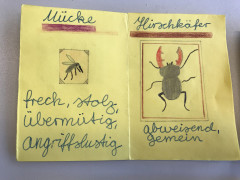 Mücke
frech, stolz,
übermütig,
angriffslustig
Hirschkäfer
abweisend,
gemein